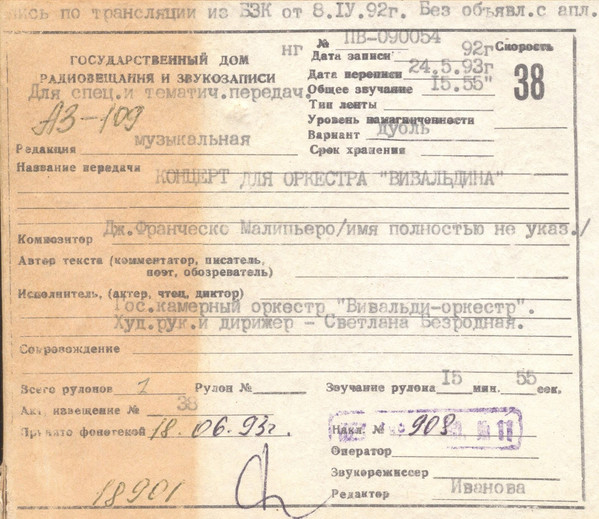 пись по трансляции из БЗК от 8.IУ.92г. Без объявл.с апл.
ГОСУДАРСТВЕННЫЙ ДОМ
РАДИОВЕЩАНИЯ И ЗВУКОЗАПИСИ
Для спец.и тематич.передач.
АЗ-109
Редакция музыкальная
нг № ПВ-090054
Дата записи 92г
Дата переписи 24.5.93г
Общее звучание 15.55"
Тип ленты
Уровень намагниченности
Вариант дубль
Срок хранения
Скорость
38
Название передачи КОНЦЕРТ ДЛЯ ОРКЕСТРА "ВИВАЛЬДИНА"
Композитор Дж.Франческо Малипьеро/имя полностью не указ./
Автор текста (комментатор, писатель,
поэт, обозреватель)
Исполнитель, (актер, чтец, диктор)
Гос.камерный оркестр "Вивальди-оркестр".
Худ.рук.и дирижер - Светлана Безродная.
Сопровождение
Всего рулонов 1 Рулон № Звучание рулона 15 мин. 55 сек.
Акт. извещение № 38
Принято фонотекой 18.06.93г. Накл. № 908 № 11
Оператор
Звукорежиссер
Редактор Иванова
18901